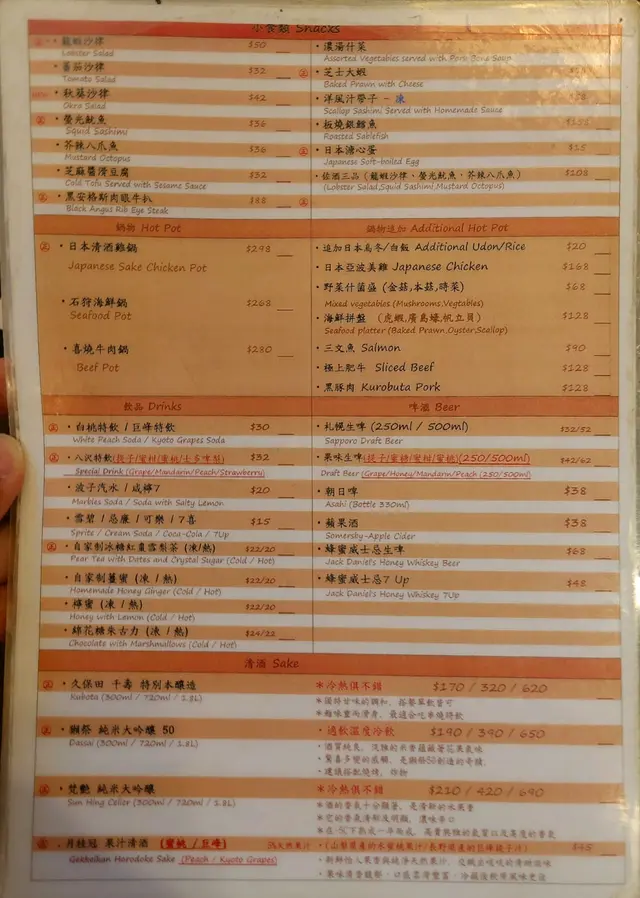 小食類 Snacks
・龍蝦沙律 $50
Lobster Salad
・蕃茄沙律 $32
Tomato Salad
・秋葵沙律 $42
Okra Salad
・螢光魷魚 $36
Squid Sashimi
・芥辣八爪魚 $36
Mustard Octopus
・芝麻醬滑豆腐 $32
Cold Tofu Served with Sesame Sauce
・黑安格斯肉眼牛扒 $88
Black Angus Rib Eye Steak
・濃湯什菜
Assorted Vegetables served with Pork Bone Soup
・芝士大蝦
Baked Prawn with Cheese
・洋風汁帶子 - 凍
Scallop Sashimi Served with Homemade Sauce
・板燒銀鱈魚
Roasted Sablefish
・日本溏心蛋 $15
Japanese Soft-boiled Egg
・佐酒三品 (龍蝦沙律、螢光魷魚、芥辣八爪魚) $108
(Lobster Salad,Squid Sashimi,Mustard Octopus)
鍋物 Hot Pot
・日本清酒雞鍋 $298
Japanese Sake Chicken Pot
・石狩海鮮鍋 $268
Seafood Pot
・喜燒牛肉鍋 $280
Beef Pot
鍋物追加 Additional Hot Pot
・追加日本烏冬/白飯 Additional Udon/Rice $20
・日本亞波美雞 Japanese Chicken $168
・野菜什菌盛 (金菇,本菇,時菜) $68
Mixed vegetables (Mushrooms,Vegtables)
・海鮮拼盤 (虎蝦,廣島蠔,帆立貝) $128
Seafood platter (Baked Prawn,Oyster,Scallop)
・三文魚 Salmon $90
・極上肥牛 Sliced Beef $128
・黑豚肉 Kurobuta Pork $128
飲品 Drinks
・白桃特飲 / 巨峰特飲 $30
White Peach Soda / Kyoto Grapes Soda
・八沢特飲(提子/蜜柑/蜜桃/士多啤梨) $32
Special Drink (Grape/Mandarin/Peach/Strawberry)
・波子汽水 / 咸檸7 $20
Marbles Soda / Soda with Salty Lemon
・雪碧 / 忌廉 / 可樂 / 7喜 $15
Sprite / Cream Soda / Coca-Cola / 7Up
・自家制冰糖紅棗雪梨茶 (凍/熱) $22/20
Pear Tea with Dates and Crystal Sugar (Cold / Hot)
・自家制薑蜜 (凍 / 熱) $22/20
Homemade Honey Ginger (Cold / Hot)
・檸蜜 (凍 / 熱) $22/20
Honey with Lemon (Cold / Hot)
・綿花糖朱古力 (凍 / 熱) $24/22
Chocolate with Marshmallows (Cold / Hot)
啤酒 Beer
・札幌生啤 (250ml / 500ml) $32/52
Sapporo Draft Beer
・果味生啤(提子/蜜糖/蜜柑/蜜桃)(250/500ml) $42/62
Draft Beer (Grape/Honey/Mandarin/Peach (250/500ml)
・朝日啤 $38
Asahi (Bottle 330ml)
・蘋果酒 $38
Somersby-Apple Cider
・蜂蜜威士忌生啤 $68
Jack Daniel's Honey Whiskey Beer
・蜂蜜威士忌7 Up $48
Jack Daniel's Honey Whiskey 7Up
清酒 Sake
・久保田 千壽 特別本釀造 *冷熱俱不錯 $170 / 320 / 620
Kubota (300ml / 720ml / 1.8L)
・獺祭 純米大吟釀 50 ・適飲溫度冷飲 $190 / 390 / 650
Dassai (300ml / 720ml / 1.8L)
・梵艷 純米大吟釀 *冷熱俱不錯 $210 / 420 / 690
Sun Hing Celler (300ml / 720ml / 1.8L)
・月桂冠 果汁清酒 (蜜桃 / 巨峰) $45
Gekkeikan Horodoke Sake (Peach / Kyoto Grapes)